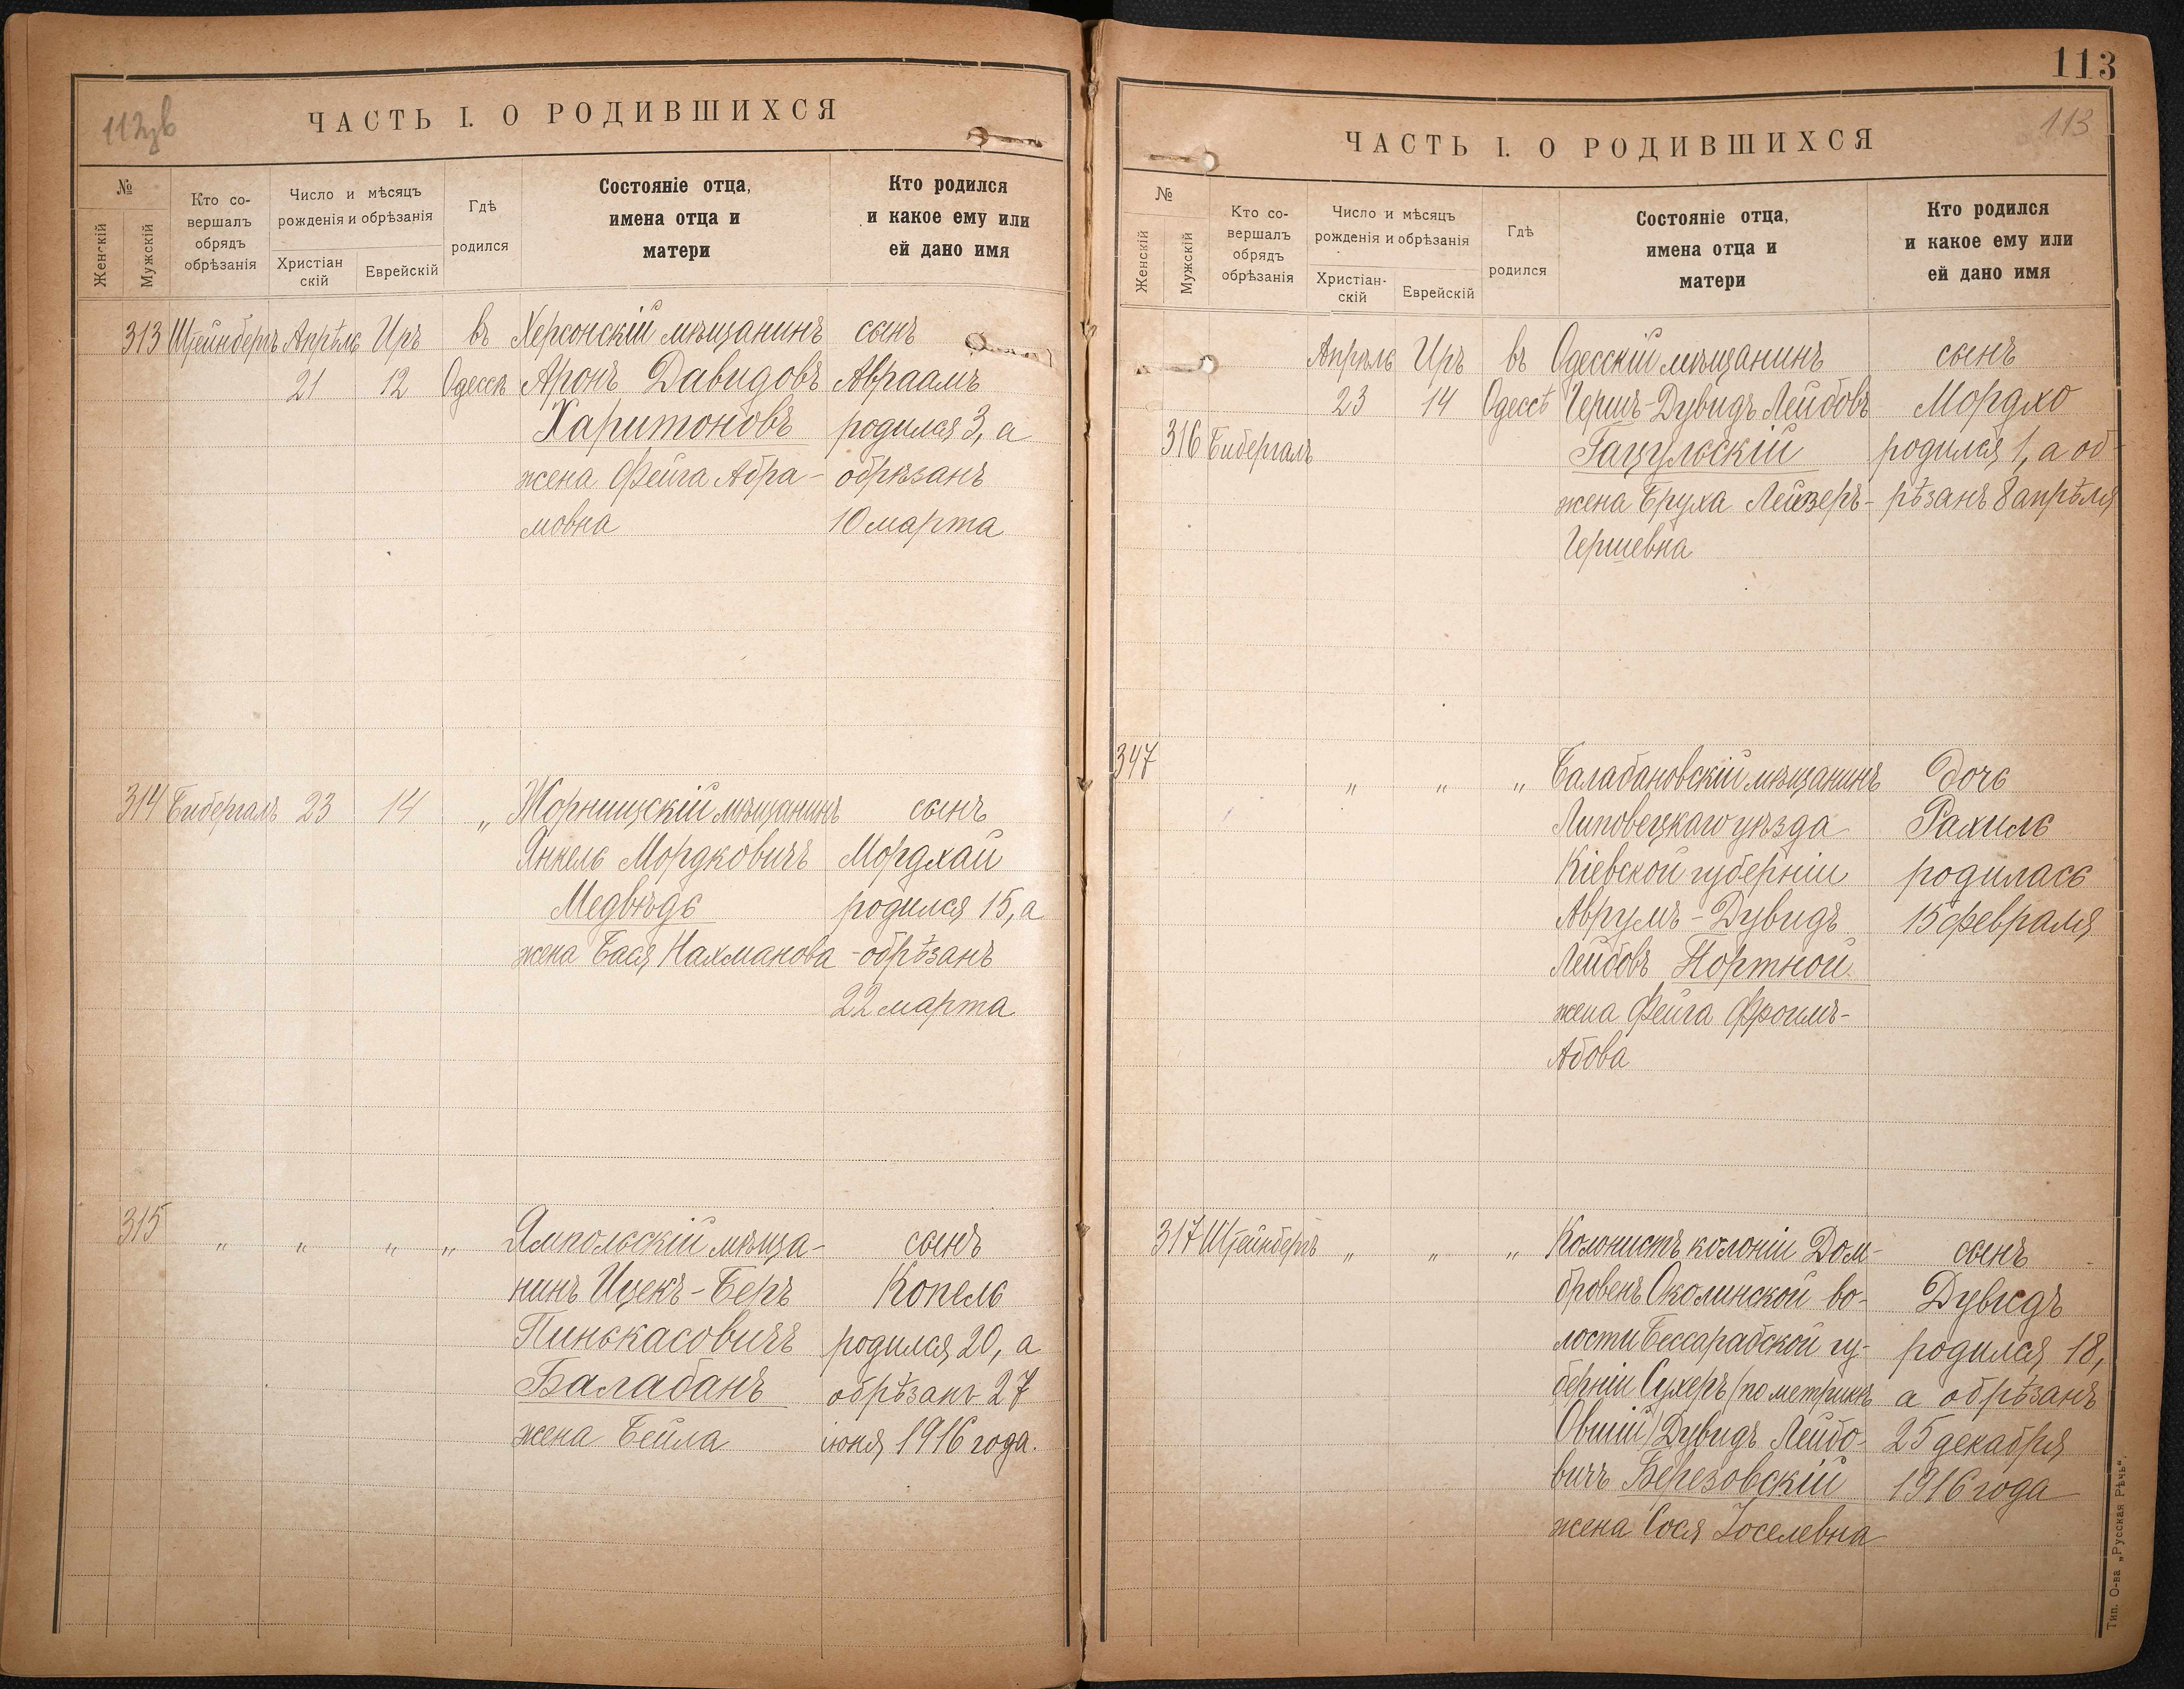 112 об
ЧАСТЬ I. О РОДИВШИХСЯ
№
Женскій
Мужскій
Кто со-
вершалъ
обрядъ
обрѣзанія
Число и мѣсяцъ
рожденія и обрѣзанія
Христіан
скій
Еврейскій
Гдѣ
родился
Состояніе отца,
имена отца и
матери
Кто родился
и какое ему или
ей дано имя
313 Штейнбергъ Апрѣль Иръ въ Херсонскій мѣщанинъ сынъ
21 12 Одессѣ Аронъ Давидовъ Авраамъ
Харитоновъ родился 3, а
жена Фейга Абра- обрѣзанъ
мовна 10 марта
314 Бибергалъ 23 14 „ Жорнищскій мѣщанинъ сынъ
Янкель Мордковичъ Мордхай
Медвѣдь родился 15, а
жена Бася Нахманова - обрѣзанъ
22 марта
315 „ „ „ „ Ямпольскій мѣща- сынъ
нинъ Ицекъ-Беръ Копель
Пинькасовичъ родился 20, а
Балабанъ обрѣзанъ 27
жена Бейла іюня 1916 года.
113
113
ЧАСТЬ I. О РОДИВШИХСЯ
№
Женскій
Мужскій
Кто со-
вершалъ
обрядъ
обрѣзанія
Число и мѣсяцъ
рожденія и обрѣзанія
Христіан-
скій
Еврейскій
Гдѣ
родился
Состояніе отца,
имена отца и
матери
Кто родился
и какое ему или
ей дано имя
Апрѣль Иръ въ Одесскій мѣщанинъ сынъ
23 14 Одессѣ Гершъ-Дувидъ Лейбовъ Мордхо
316 Бибергалъ Гацульскій родился 1, а об-
жена Бруха Лейзеръ- рѣзанъ 8 апрѣля
Гершевна
347 „ „ „ Балабановскій мѣщанинъ дочь
Липовецкаго уѣзда Рахиль
Кіевской губерніи родилась
Аврумъ-Дувидъ 15 февраля
Лейбовъ Портной
жена Фейга Фроимъ-
Абова
317 Штейнбергъ „ „ „ Колонистъ колоніи Дом- сынъ
бровенъ Околинской во- Дувидъ
лости Бессарабской гу- родился 18,
берніи Сухеръ (по метрикѣ а обрѣзанъ
Овшій) Дувидъ Лейбо- 25 декабря
вичъ Березовскій 1916 года
жена Сося Іоселевна
Тип. О-ва „Русская Рѣчь“.